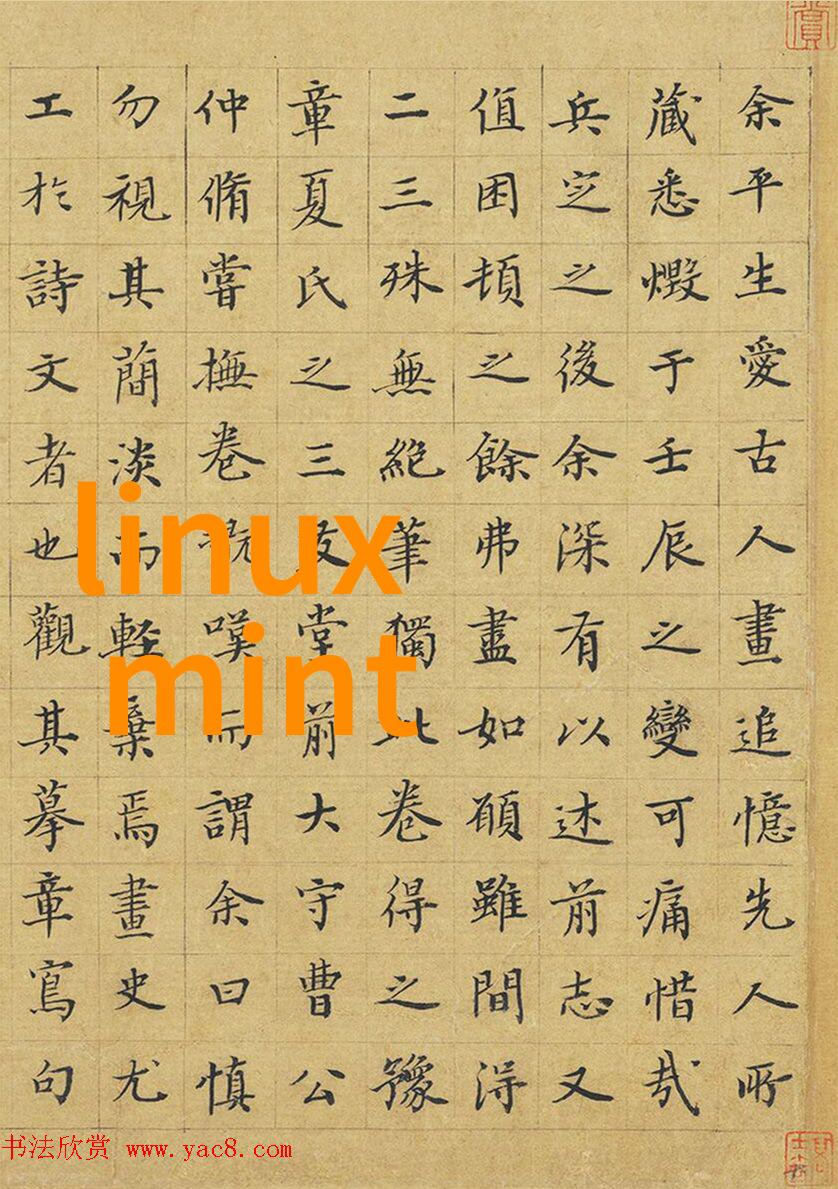 余平生愛古人畫追憶先人所
藏悉燬于壬辰之變可痛惜哉
兵定之後余深有以述前志又
值困頓之餘弗盡如願雖間得
二三殊無絕筆獨此卷得之豫
章夏氏之三友堂前大守曹公
仲脩嘗撫卷嘆而謂余曰慎
勿視其簡淡而輕棄焉畫史尤
工於詩文者也觀其摹章寫句
linux
mint
书法欣赏 www.yac8.com